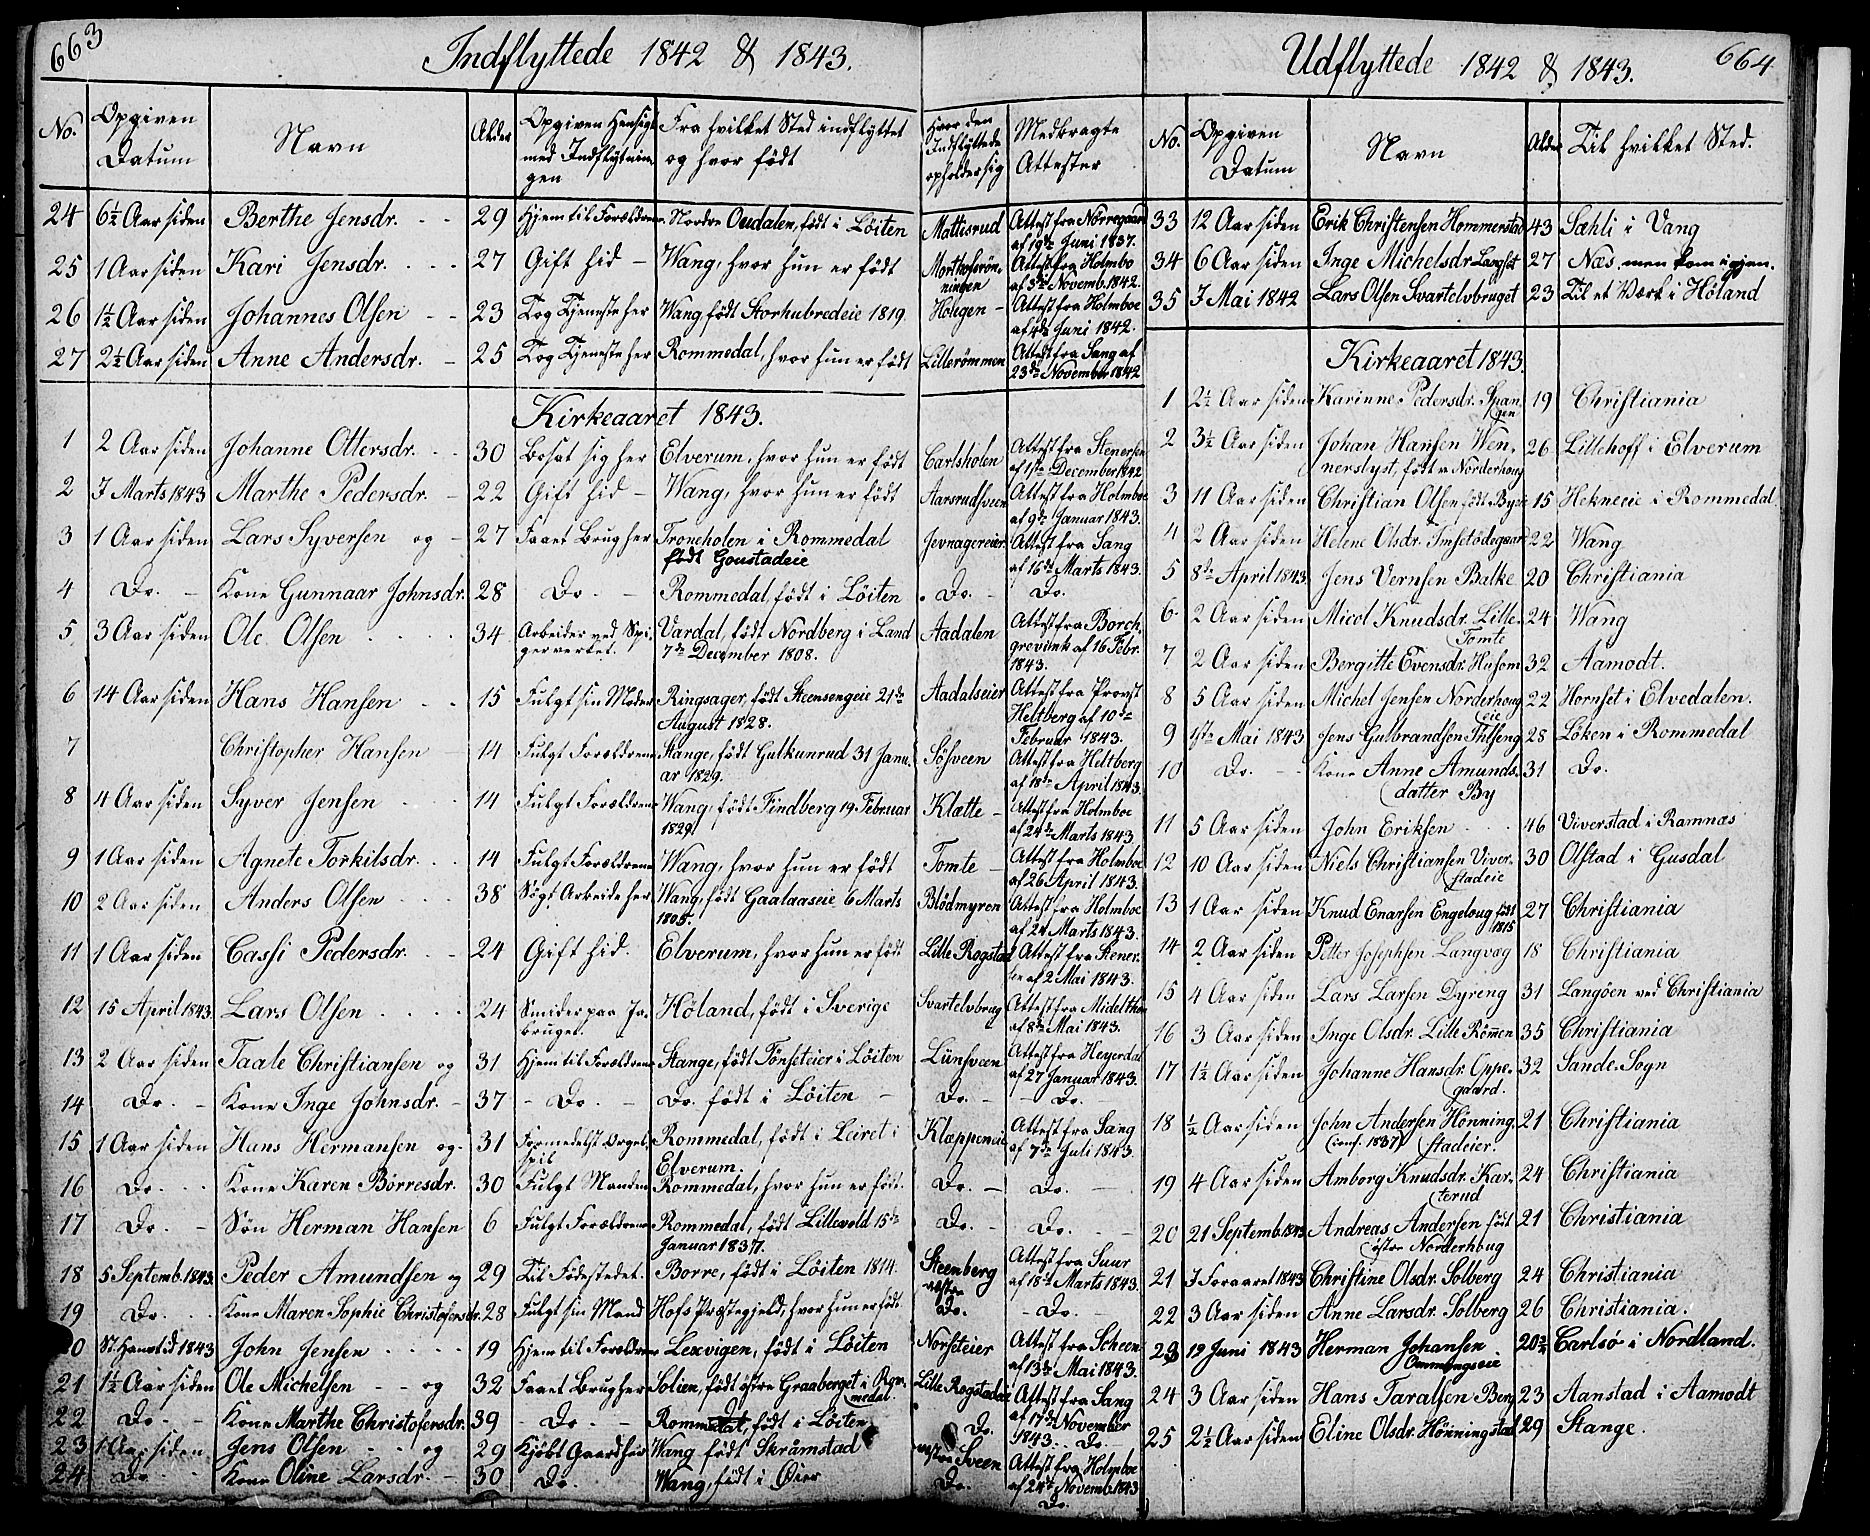 663
Indflyttede 1842 & 1843.
No. Opgiven Datum Navn Alder Opgiven Hensigt med Indflytningen Fra hvilket Sted indflyttet og hvor født Hvor den Indflyttede opholder sig Medbragte Attester
24 6½ Aar siden Berthe Jensdr. 29 Hjem til Forældrene Nordre Oudalen, født i Löiten Mattisrud Attest fra Nörregaard af 19de Juni 1837.
25 1 Aar siden Kari Jensdr. 27 Gift hid Wang, hvor hun er født Attest fra Holmbo af 3de Novemb. 1842.
26 1½ Aar siden Johannes Olsen 23 Tog Tjeneste her Wang, født Storhubredeie 1819 Hougen Attest fra Holmboe af 4de Juni 1842.
27 2½ Aar siden Anne Andersdr. 25 Tog Tjeneste her Rommedal, hvor hun er født Lillerömmen Attest fra Sang af 23de November 1842
Kirkeaaret 1843.
1 2 Aar siden Johanne Ottersdr. 30 Bosat sig her Elverum, hvor hun er født Carlsholen Attest fra Stenersen af 1ste December 1842
2 I Marts 1843 Marthe Pedersdr. 22 Gift hid Wang, hvor hun er født Aarsrudsveen Attest fra Holmboe af 9de Januar 1843.
3 1 Aar siden Lars Syversen og 27 Faaet Brug her Troneholen i Rommedal født Goustadeie Jevnagereier Attest fra Sang af 16de Marts 1843.
4 Do. Kone Gunnaar Johnsdr. 28 Do. Rommedal, født i Löiten Do. Do.
5 3 Aar siden Ole Olsen 34 Arbeider ved Spigerverket. Vardal, født Nordberg i Land 7de December 1808. Aadalen Attest fra Borchgrevink af 16 Febr. 1843.
6 14 Aar siden Hans Hansen 15 Fulgt sin Moder Ringsager, født Steensengeie 21de August 1828. Aadalseier Attest fra Provst Heltberg af 10de Februar 1843.
7 Christopher Hansen 14 Fulgt Forældrene Stange, født Gulkunrud 31 Januar 1829. Sösveen Attest fra Heltberg af 18de April 1843.
8 4 Aar siden Syver Jensen 14 Fulgt Forældrene Wang, født Findberg 19 Februar 1829. Klætte Attest fra Holmboe af 24de Marts 1843.
9 1 Aar siden Agnete Torkilsdr. 14 Fulgt Forældrene Wang, hvor hun er født Tomte Attest fra Holmboe af 26 April 1843.
10 2 Aar siden Anders Olsen 38 Søgt Arbeide her Wang, født Gaalaaseie 6 Marts 1805. Blödmyren Attest fra Holmboe af 24 Marts 1843.
11 1 Aar siden Cassi Pedersdr. 24 Gift hid. Elverum, hvor hun er født Lille Rogstad Attest fra Stenersen af 2 Mai 1843.
12 15 April 1843 Lars Olsen 24 Smider paa Jabruget. Höland, født i Sverige Svartelvbrug Attest fra Midelthon af 8de Mai 1843.
13 2 Aar siden Taale Christiansen og 31 Hjem til Forældrene Stange, født Tönseteier i Löiten Lünsveen Attest fra Heyerdal af 27 Januar 1843.
14 Do. Kone Inge Johnsdr. 37 Do. Do. født i Löiten Do. Do.
15 1 Aar siden Hans Hermansen og 31 Formedelst Orgelspil Rommedal, født i Leiret i Elverum. Klæppeneie Attest fra Sang af 7de Juli 1843.
16 Do. Kone Karen Börresdr. 30 Fulgt Manden Rommedal, hvor hun er født. Do. Do.
17 Do. Søn Herman Hansen 6 Fulgt Forældrene Rommedal, født Lillevold 15de Januar 1837. Do. Do.
18 5 Septemb. 1843. Peder Amundsen og 29 Til Fødestedet. Borre, født i Löiten 1814. Steenberg vestre Attest fra Suur af 18de Marts 1843.
19 Do. Kone Maren Sophie Christofersdr. 28 Fulgt sin Mand Hofs Præstegjeld, hvor hun er født Do. Do.
20 St. Hanstid 1843 John Jensen 19 Hjem til Forældrene Lexvigen, født i Löiten Norseteier Attest fra Scheen af 13de Mai 1843.
21 1½ Aar siden Ole Michelsen og 32 Faaet Brug her Solien, født østre Graaberget i Rommedal Lille Rogstadeie Attest fra Sang af 17de November 1843.
22 Do. Kone Marthe Christofersdr. 39 Do. Rommedal, født i Löiten Do. Do.
23 1 Aar siden Jens Olsen og 29 Kjøbt Gaard her Wang, født Skråmstad vestre Sveen Attest fra Holmboe af 24de Novemb. 1843
24 Do. Kone Oline Larsdr. 30 Do. Wang, født i Öier Do. Do.
664
Udflyttede 1842 & 1843.
No. Opgiven Datum Navn Alder Til hvilket Sted.
33 12 Aar siden Erik Christensen Hommerstad 43 Sæhli i Vang
34 6 Aar siden Inge Michelsdr Langset 27 Næs, men kom igjen.
35 I Mai 1842 Lars Olsen Svartelvbruget 23 Til et Værk i Höland
Kirkeaaret 1843.
1 2½ Aar siden Karinne Pedersdr. Spangen 19 Christiania
2 3½ Aar siden Johan Hansen Wennerslyst, født v. Norderhoug 26 Lillehoff i Elverum
3 11 Aar siden Christian Olsen født Byeie 15 Hekneeie i Rommedal
4 2 Aar siden Helene Olsdr. Imsetödegaard 22 Wang
5 8de April 1843. Jens Vernsen Balke 20 Christiania
6 2 Aar siden Micol Knudsdr. Lille Tomte 24 Wang
7 2 Aar siden Bergitte Evensdr. Husom 32 Aamodt.
8 5 Aar siden Michel Jensen Norderhougeie 22 Hornset i Elvedalen.
9 1ste Mai 1843 Jens Gulbrandsen Ihlseng 28 Löken i Rommedal
10 Do. Kone Anne Amundsdatter By 31 Do.
11 5 Aar siden John Eriksen 46 Viverstad i Ramnæs
12 10 Aar siden Niels Christiansen Viverstadeie 30 Olstad i Gusdal
13 1 Aar siden Knud Enarsen Engeloug født 1815 27 Christiania
14 2 Aar siden Petter Josephsen Langvag 18 Christiania
15 4 Aar siden Lars Larsen Dyreng 31 Langöen ved Christiania
16 3 Aar siden Inge Olsdr. Lille Römen 35 Christiania
17 1½ Aar siden Johanne Hansdr. Oppegaard. 32 Sande-Sogn
18 ½ Aar siden John Andersen Hönningstadeier. (conf. 1837) 21 Christiania
19 4 Aar siden Amborg Knudsdr. Karterud 24 Christiania
20 21 Septemb. 1843 Andreas Andersen født østre Norderhoug 21 Christiania
21 I Foraaret 1843 Christine Olsdr. Solberg 24 Christiania
22 3 Aar siden Anne Larsdr. Solberg 26 Christiania.
23 19 Juni 1843 Herman Johansen 20¾ Carlsö i Nordland.
24 3 Aar siden Hans Taralsen Berg 23 Aanstad i Aamodt
25 2½ Aar siden Eline Olsdr. Hönningstad 29 Stange.